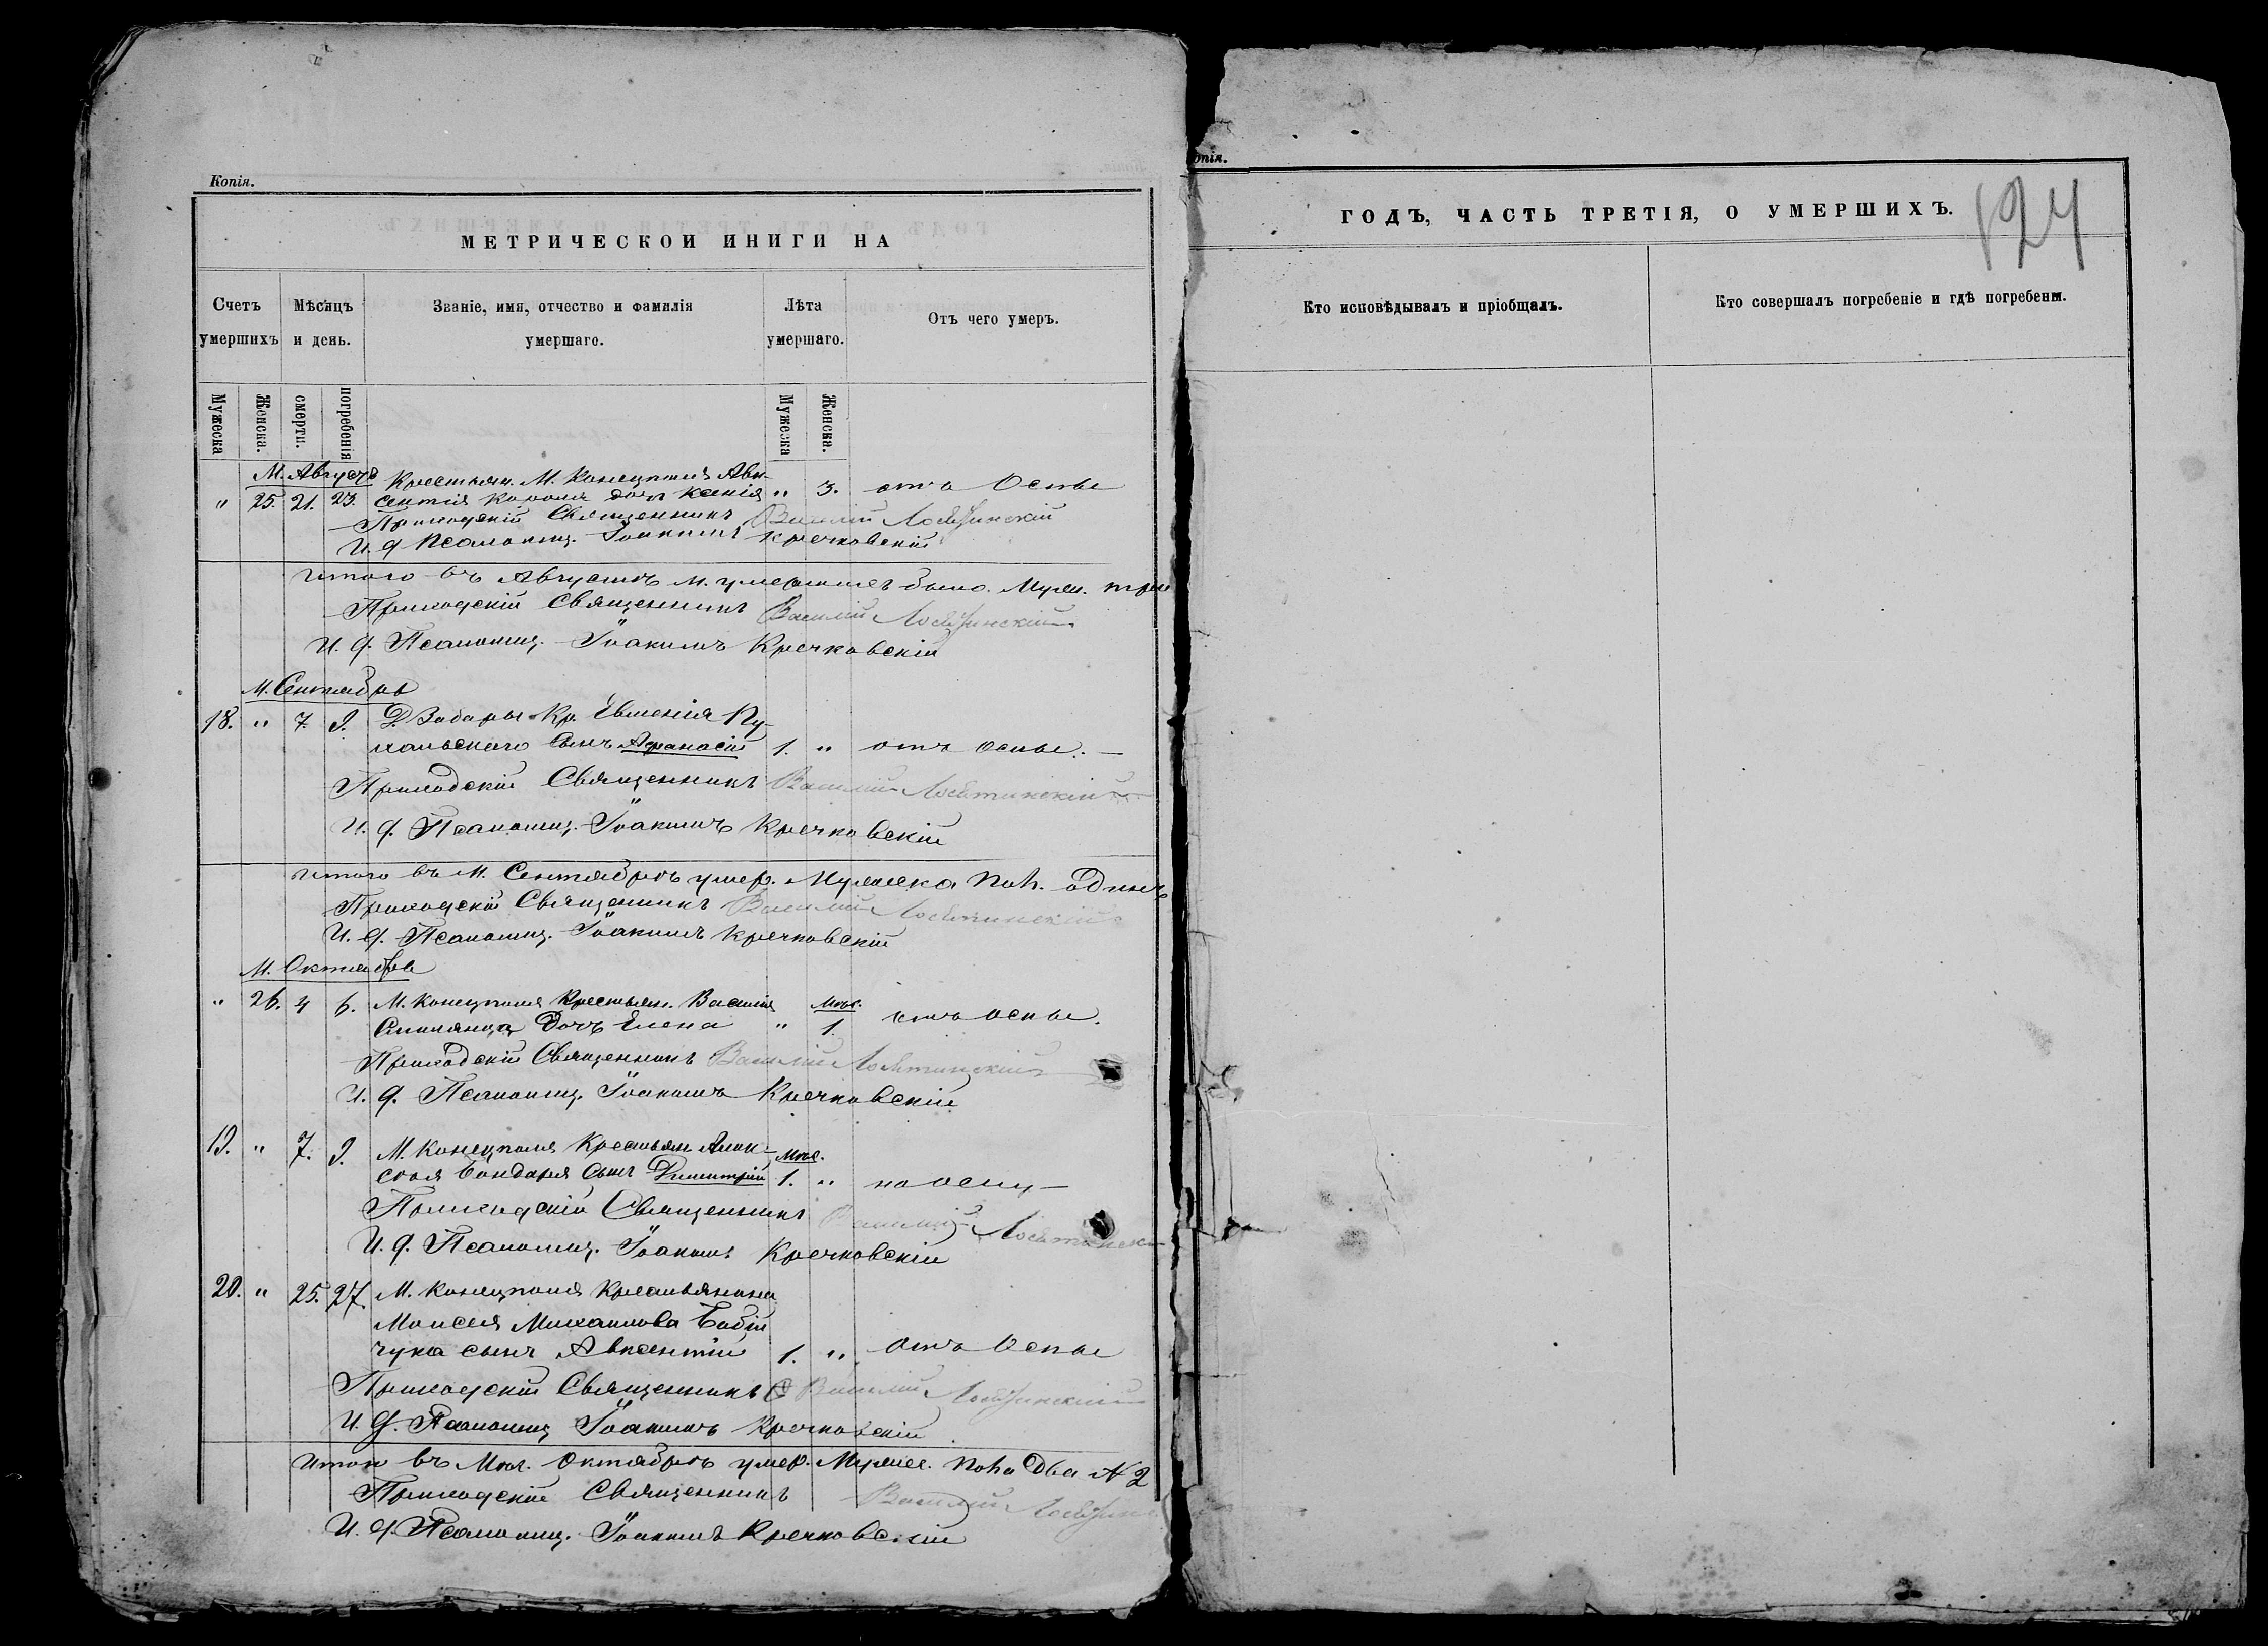 Копія.
МЕТРИЧЕСКОИ ИНИГИ НА
Счетъ умершихъ
Мѣсяцъ и день.
Званіе, имя, отчество и фамилія умершаго.
Лѣта умершаго.
Отъ чего умеръ.
Мужеска
Женска.
смерти.
погребенія
Мужеска
Женска.
М. Августъ
Крестьян. М. Конецполя Авк-
" 25. 21. 23. сентія Короля дочъ Ксенія " 3. отъ Оспы
Приходскій Священникъ Василій
И. д. Псаломщ. Іоакимъ Кречковскій
Итого въ Августѣ м. умершихъ было. Муж. три
Приходскій Священникъ Василій
И. д. Псаломщ. Іоакимъ Кречковскій
М. Сентябрь
18. " 7. 9. Д. Забары Кр. Евменія Пу-
хальскаго сынъ Афанасій 1. " отъ оспы. —
Приходскій Священникъ Василій
И. д. Псаломщ. Іоакимъ Кречковскій
Итого въ М. Сентябрѣ умер. Мужеска пол. одинъ
Приходскій Священникъ Василій
И. д. Псаломщ. Іоакимъ Кречковскій
М. Октябрь
" 26. 4 6. М. Конецполя Крестьян. Василія Мѣс.
Дочъ Елена " 1. отъ оспы.
Приходскій Священникъ Василій
И. д. Псаломщ. Іоакимъ Кречковскій
19. " 7. 9. М. Конецполя Крестьян. Алек- Мѣс.
сѣя Бондаря сынъ Димитрій 1. " на оспу —
Приходскій Священникъ Василій
И. д. Псаломщ. Іоакимъ Кречковскій
20. " 25. 27. М. Конецполя Крестьянина
Моисея Михаилова Бабій
чука сынъ Авксентій 1. " отъ Оспы
Приходскій Священникъ Василій
И. д. Псаломщ. Іоакимъ Кречковскій
Итого въ Мѣс. Октябрѣ умер. Мужес. пола Два № 2
Приходскій Священникъ Василій
И. д. Псаломщ. Іоакимъ Кречковскій
опія.
ГОДЪ, ЧАСТЬ ТРЕТІЯ, О УМЕРШИХЪ.
124
Кто исповѣдывалъ и пріобщалъ.
Кто совершалъ погребеніе и гдѣ погребены.